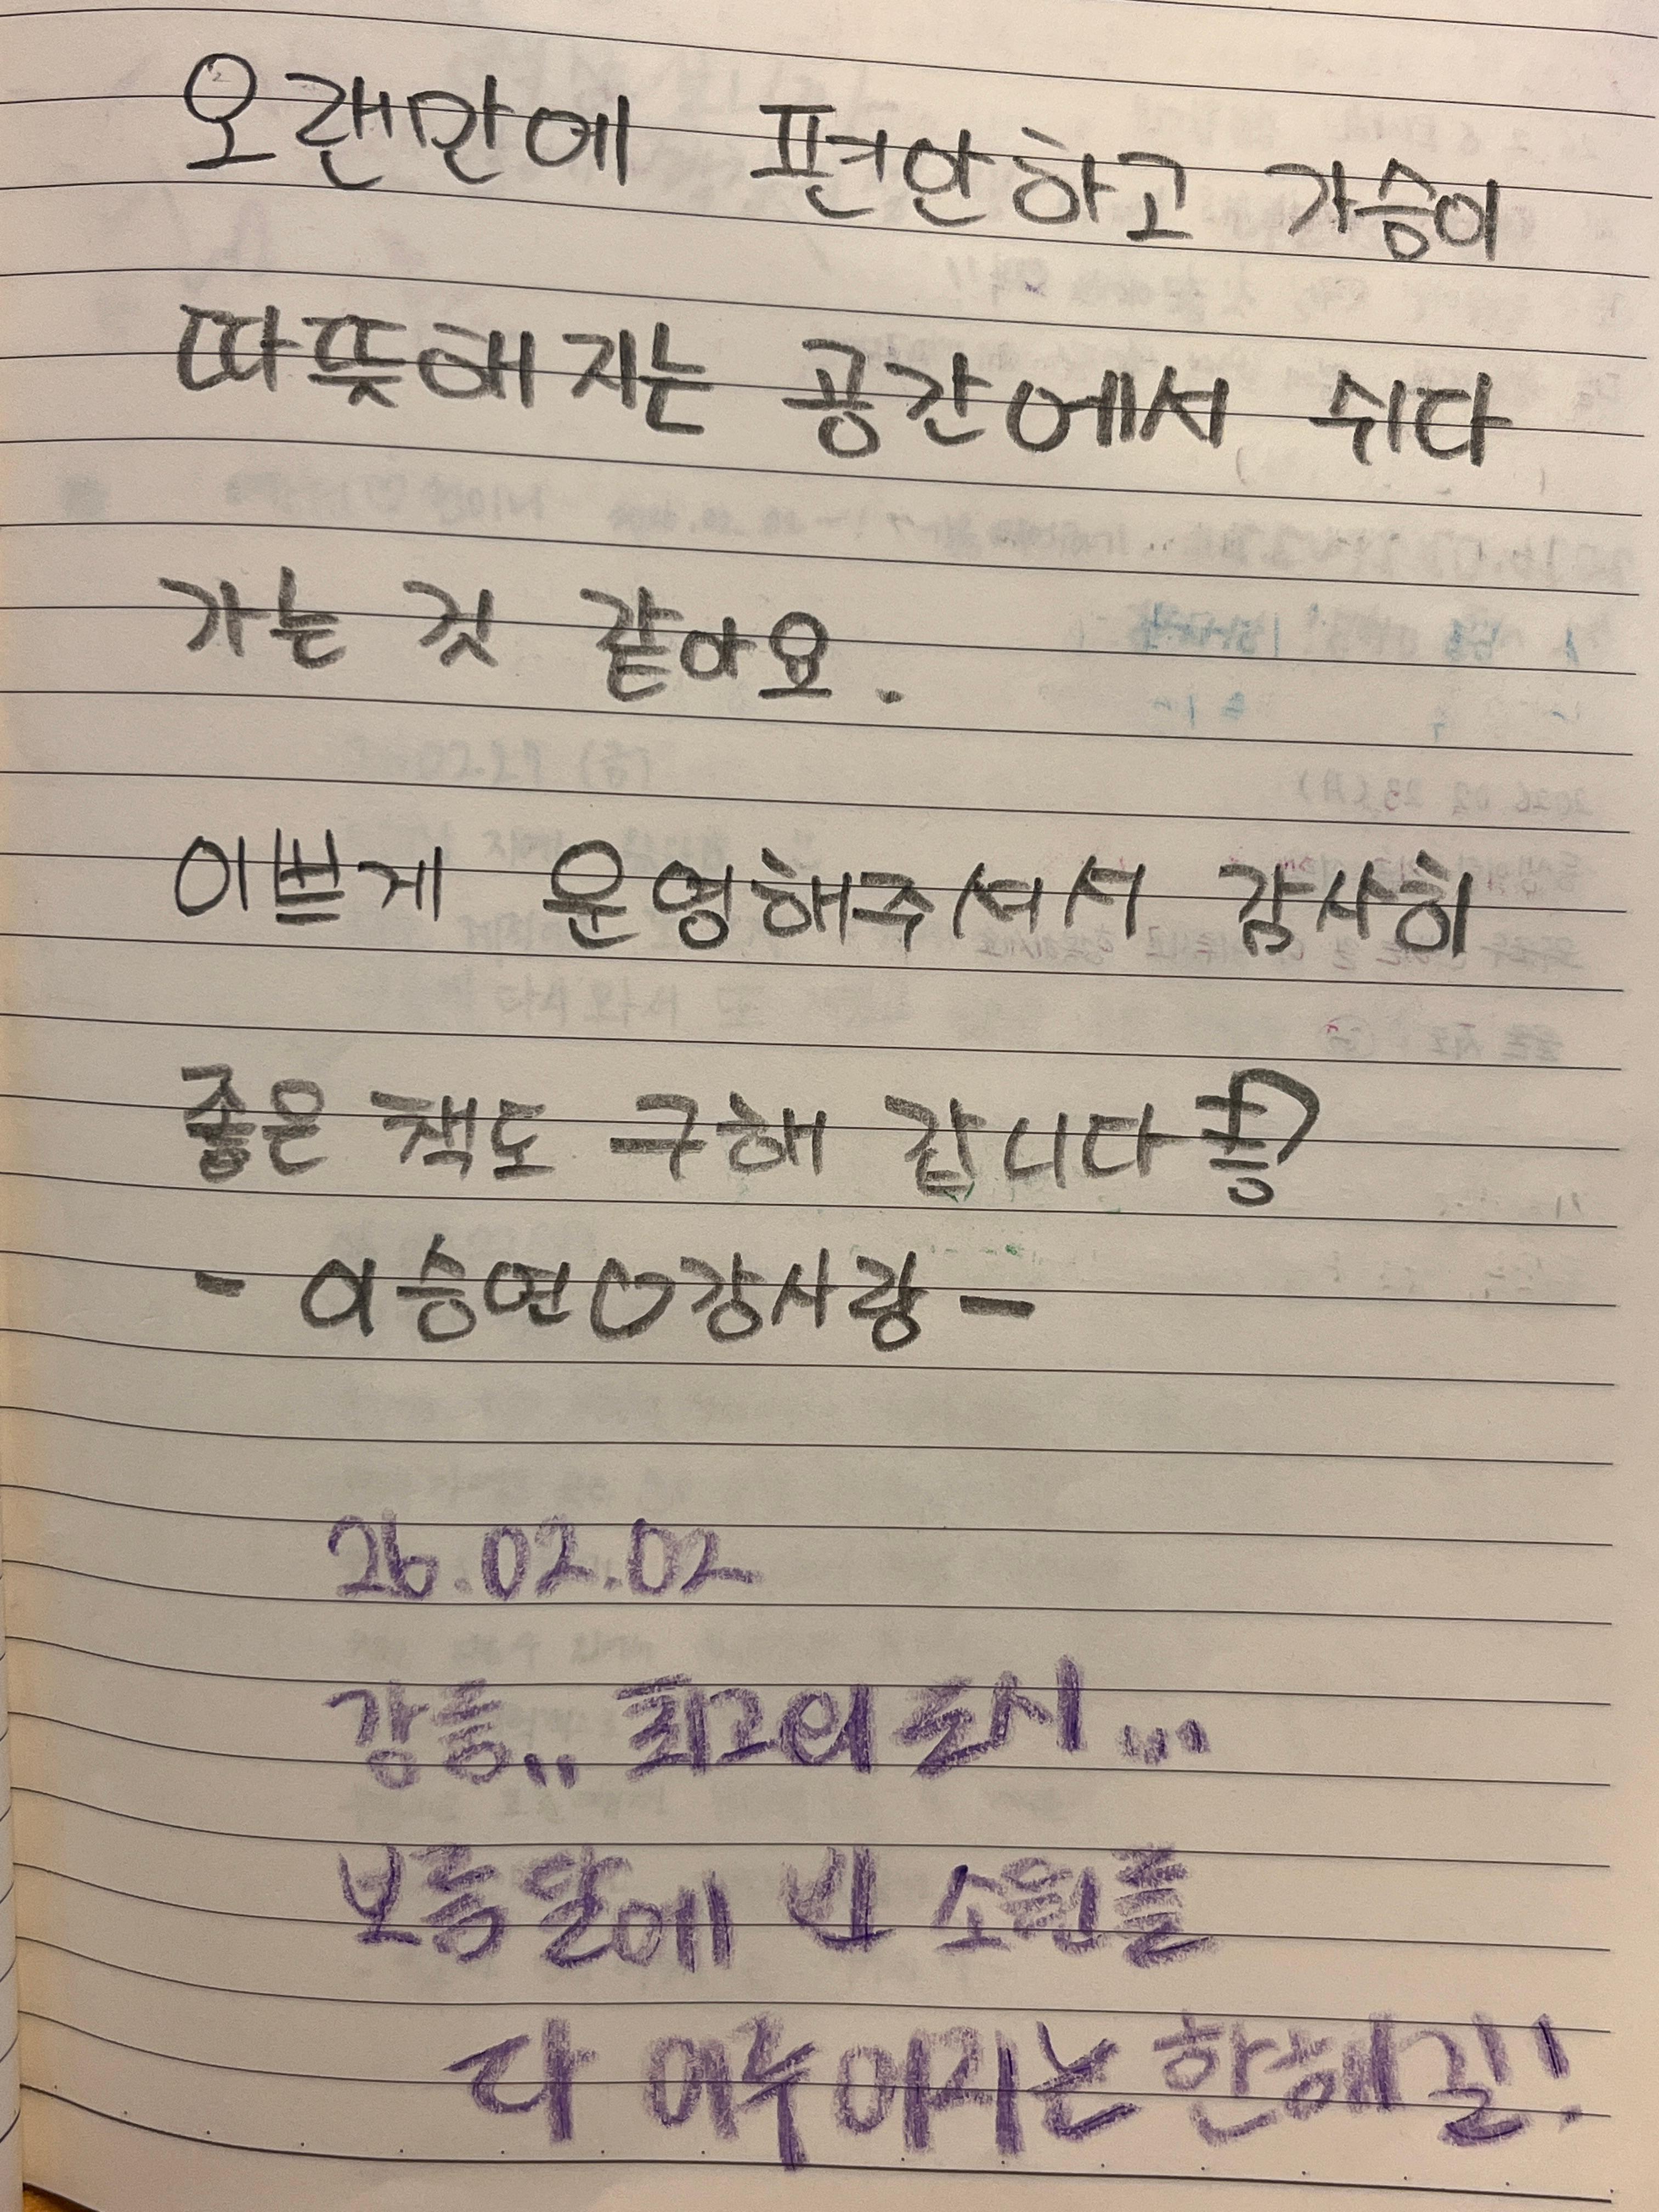 오랜만에 편안하고 가슴이
따뜻해지는 공간에서 쉬다
가는 것 같아요.
이쁘게 운영해주셔서 감사히
좋은 책도 구해 갑니다
- 이승연♡강사랑 -
26.02.02
강릉.. 최고의 도시...
보름달에 빈 소원들
다 이루어지는 한해길!